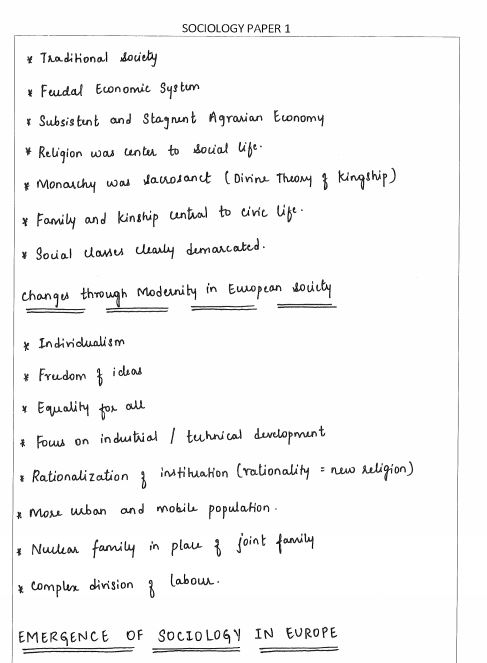 SOCIOLOGY PAPER 1
* Traditional society
* Feudal Economic System
* Subsistent and Stagnent Agrarian Economy
* Religion was center to social life.
* Monarchy was sacrosanct (Divine Theory of Kingship)
* Family and kinship central to civic life.
* Social classes clearly demarcated.
Changes through Modernity in European society
* Individualism
* Freedom of ideas
* Equality for all
* Focus on industrial / technical development
* Rationalization of instituation (rationality = new religion)
* More urban and mobile population.
* Nuclear family in place of joint family
* Complex division of labour.
EMERGENCE OF SOCIOLOGY IN EUROPE